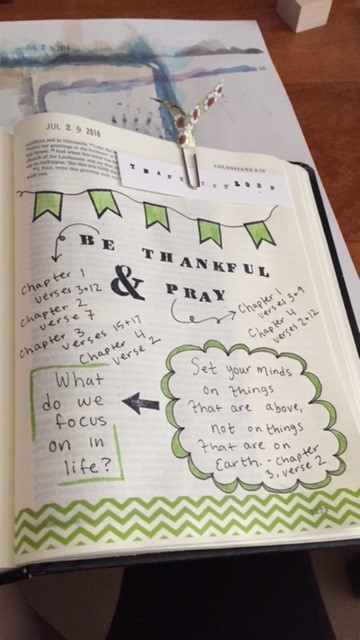 JUL 29 2016
JUL 29 2016
COLOSSIANS 4:18
THANK YOU LORD
BE THANKFUL
& PRAY
Chapter 1
verses 3+12
Chapter 2
verse 7
Chapter 3
verses 15+17
Chapter 4
verse 2
Chapter 1
verses 3+9
Chapter 4
verses 2+12
What
do we
focus
on in
life?
Set your minds
on things
that are above,
not on things
that are on
Earth. - Chapter
3, verse 2